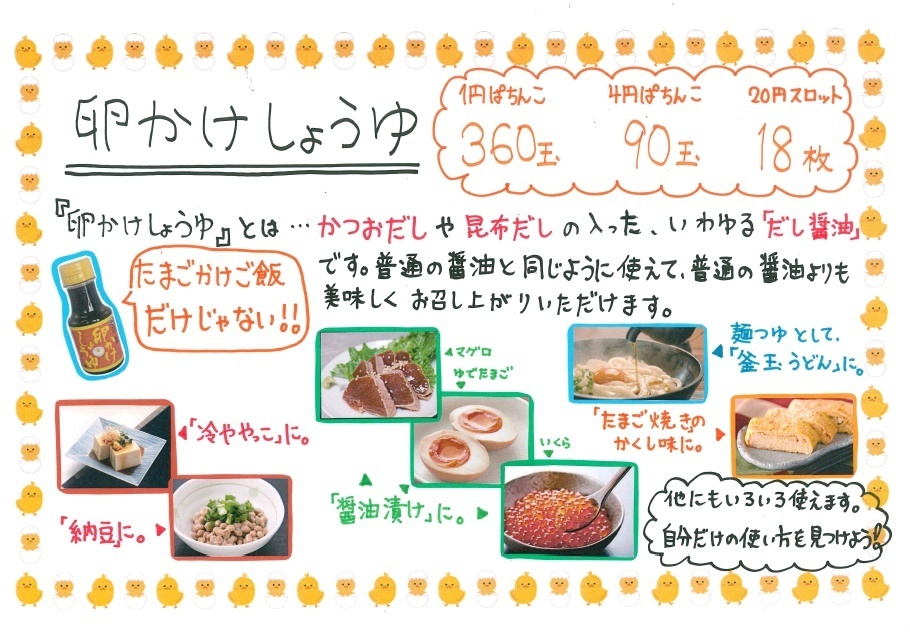 卵かけしょうゆ
1円ぱちんこ 4円ぱちんこ 20円スロット
360玉 90玉 18枚
『卵かけしょうゆ』とは…かつおだしや昆布だしの入った、いわゆる「だし醤油」
です。普通の醤油と同じように使えて、普通の醤油よりも
美味しくお召し上がりいただけます。
たまごかけご飯
だけじゃない!!
卵かけ
しょうゆ
マグロ
ゆでたまご
いくら
「醤油漬け」に。
麺つゆとして、
「釜玉うどん」に。
「冷ややっこ」に。
「たまご焼き」の
かくし味に。
「納豆」に。
他にもいろいろ使えます。
自分だけの使い方を見つけよう!!